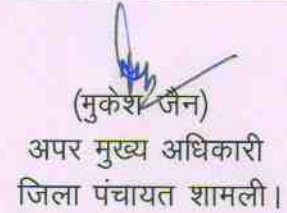 (मुकेश जैन)
अपर मुख्य अधिकारी
जिला पंचायत शामली।